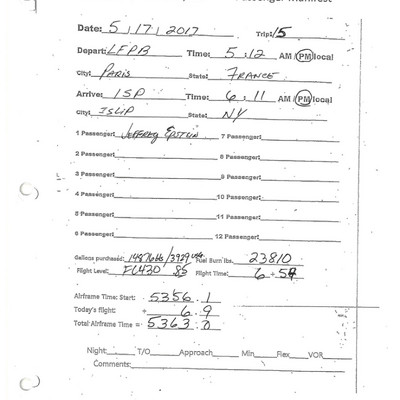 Passenger Manifest
Date: 5 / 17 / 2017 Trip: 15
Depart: LFPB Time: 5 : 12 AM / PM local
City: PARIS State: FRANCE
Arrive: ISP Time: 6 : 11 AM / PM local
City: ISLIP State: NY
1 Passenger: JEFFREY EPSTEIN 7 Passenger:
2 Passenger: 8 Passenger:
3 Passenger: 9 Passenger:
4 Passenger: 10 Passenger:
5 Passenger: 11 Passenger:
6 Passenger: 12 Passenger:
Gallons purchased: / 3929 Fuel Burn lbs. 23810
Flight Level: FL430 85 Flight Time: 6 + 59
Airframe Time: Start: 5356 . 1
Today's flight: + 6 . 9
Total Airframe Time = 5363 . 0
Night: T/O Approach Min Flex VOR
Comments: